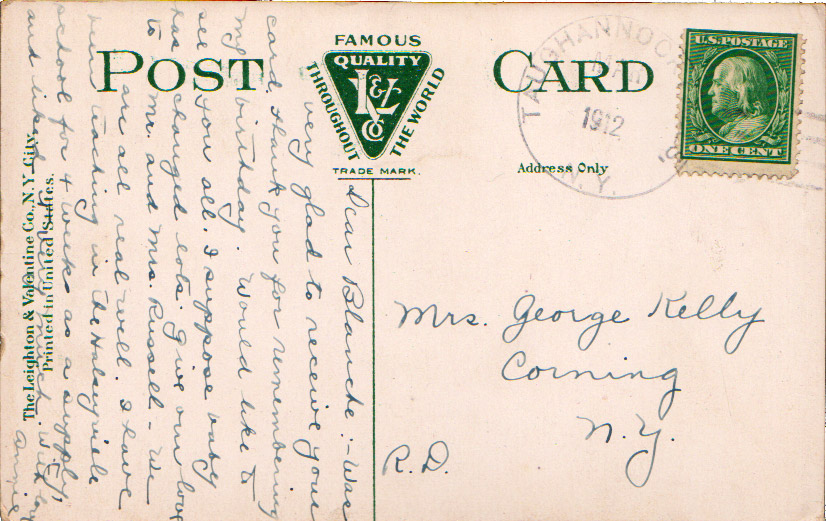 POST CARD
FAMOUS
QUALITY
THROUGHOUT
THE WORLD
L & V
Co
TRADE MARK.
Address Only
TAUGHANNOCK
1912
N.Y.
U.S. POSTAGE
ONE CENT
The Leighton & Valentine Co., N.Y. City.
Printed in United States.
Dear Blanche:- Was
very glad to receive your
card, thank you for remembering
my birthday. Would like to
see you all. I suppose baby
has changed lots. Give our love
to Mr. and Mrs. Russell - We
are all real well. I have
been teaching in the Halseyville
school for 4 weeks as a supply,
and liked it very much. With love
Annie
Mrs. George Kelly
Corning
N.Y.
R.D.